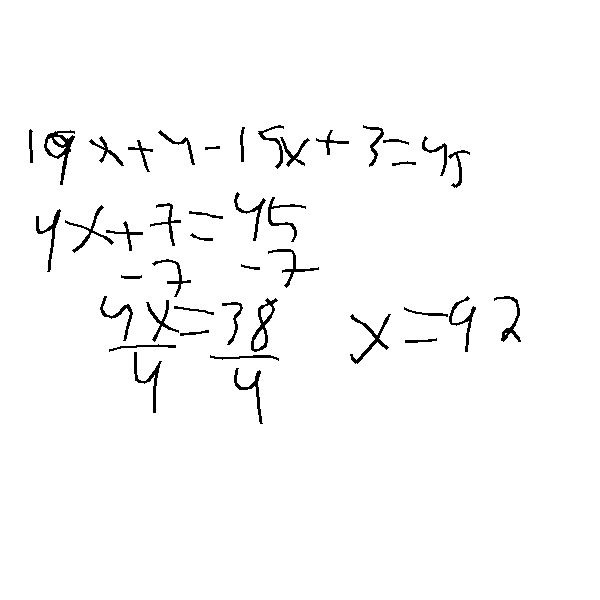 19x+4-15x+3=45
4x+7=45
-7 -7
4x=38 x=92
4 4